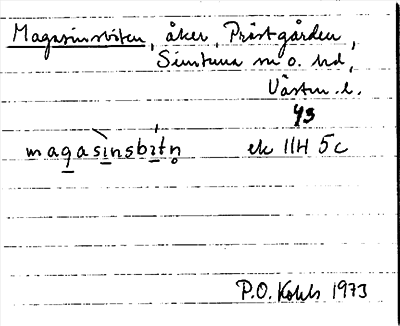 Magasinsbiten, åker, Prästgården,
Simtuna sn o. hd,
Västm. l.
43
magasìnsbı̣tn̥ ek 11H 5c
P.O. Kohls 1973